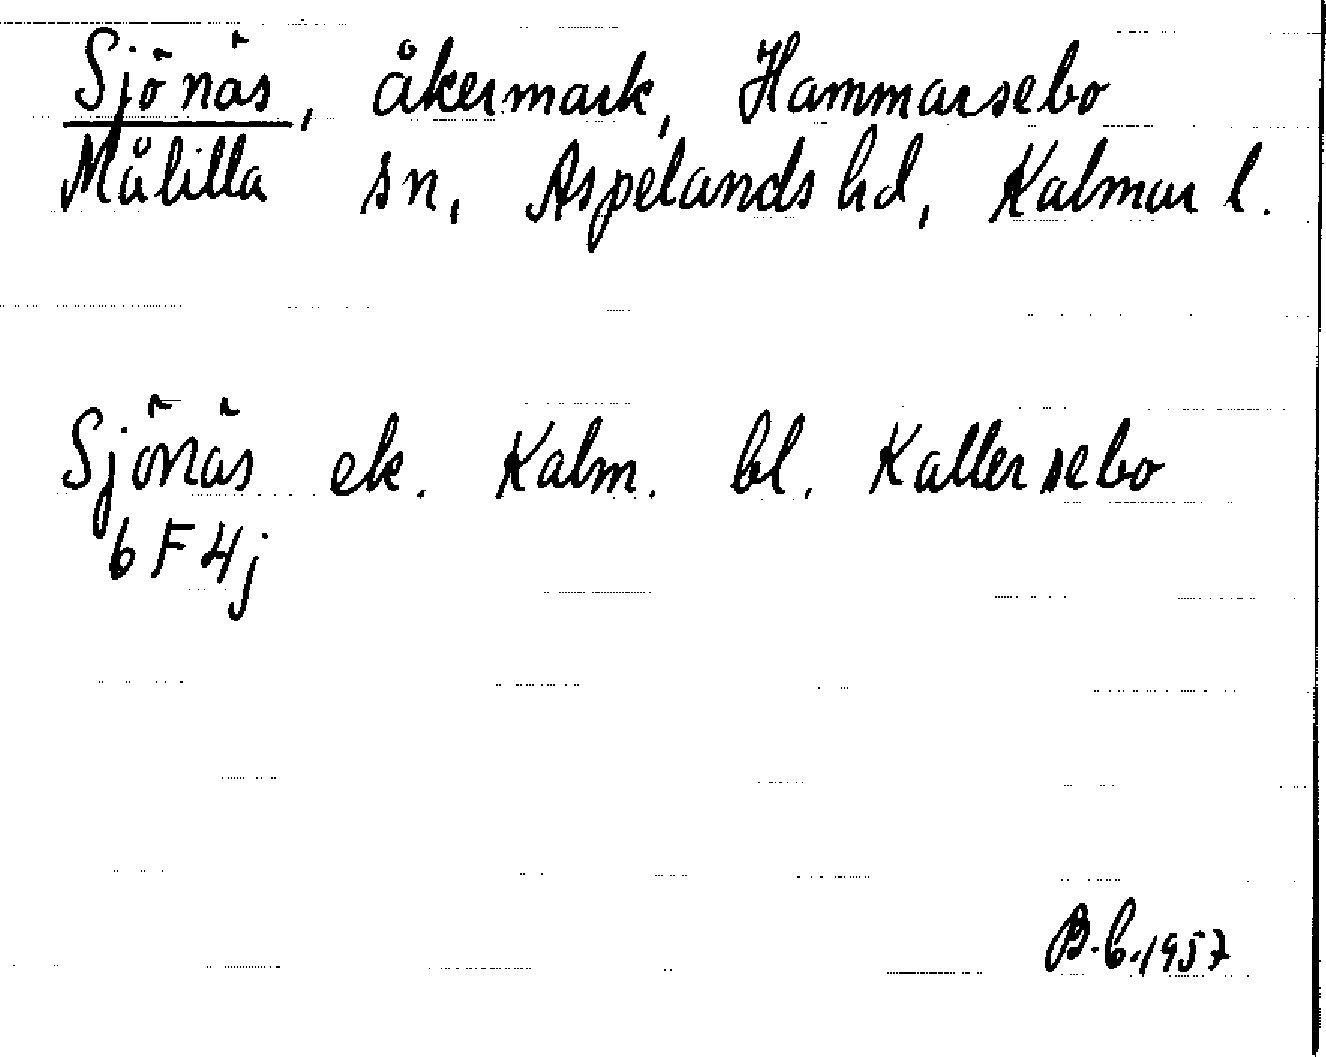 Sjönäs, åkermark, Hammarsebo
Målilla sn, Aspelands hd, Kalmar l.
Sjönäs ek. Kalm. bl. Kallersebo
6 F 4j
B.b.1957